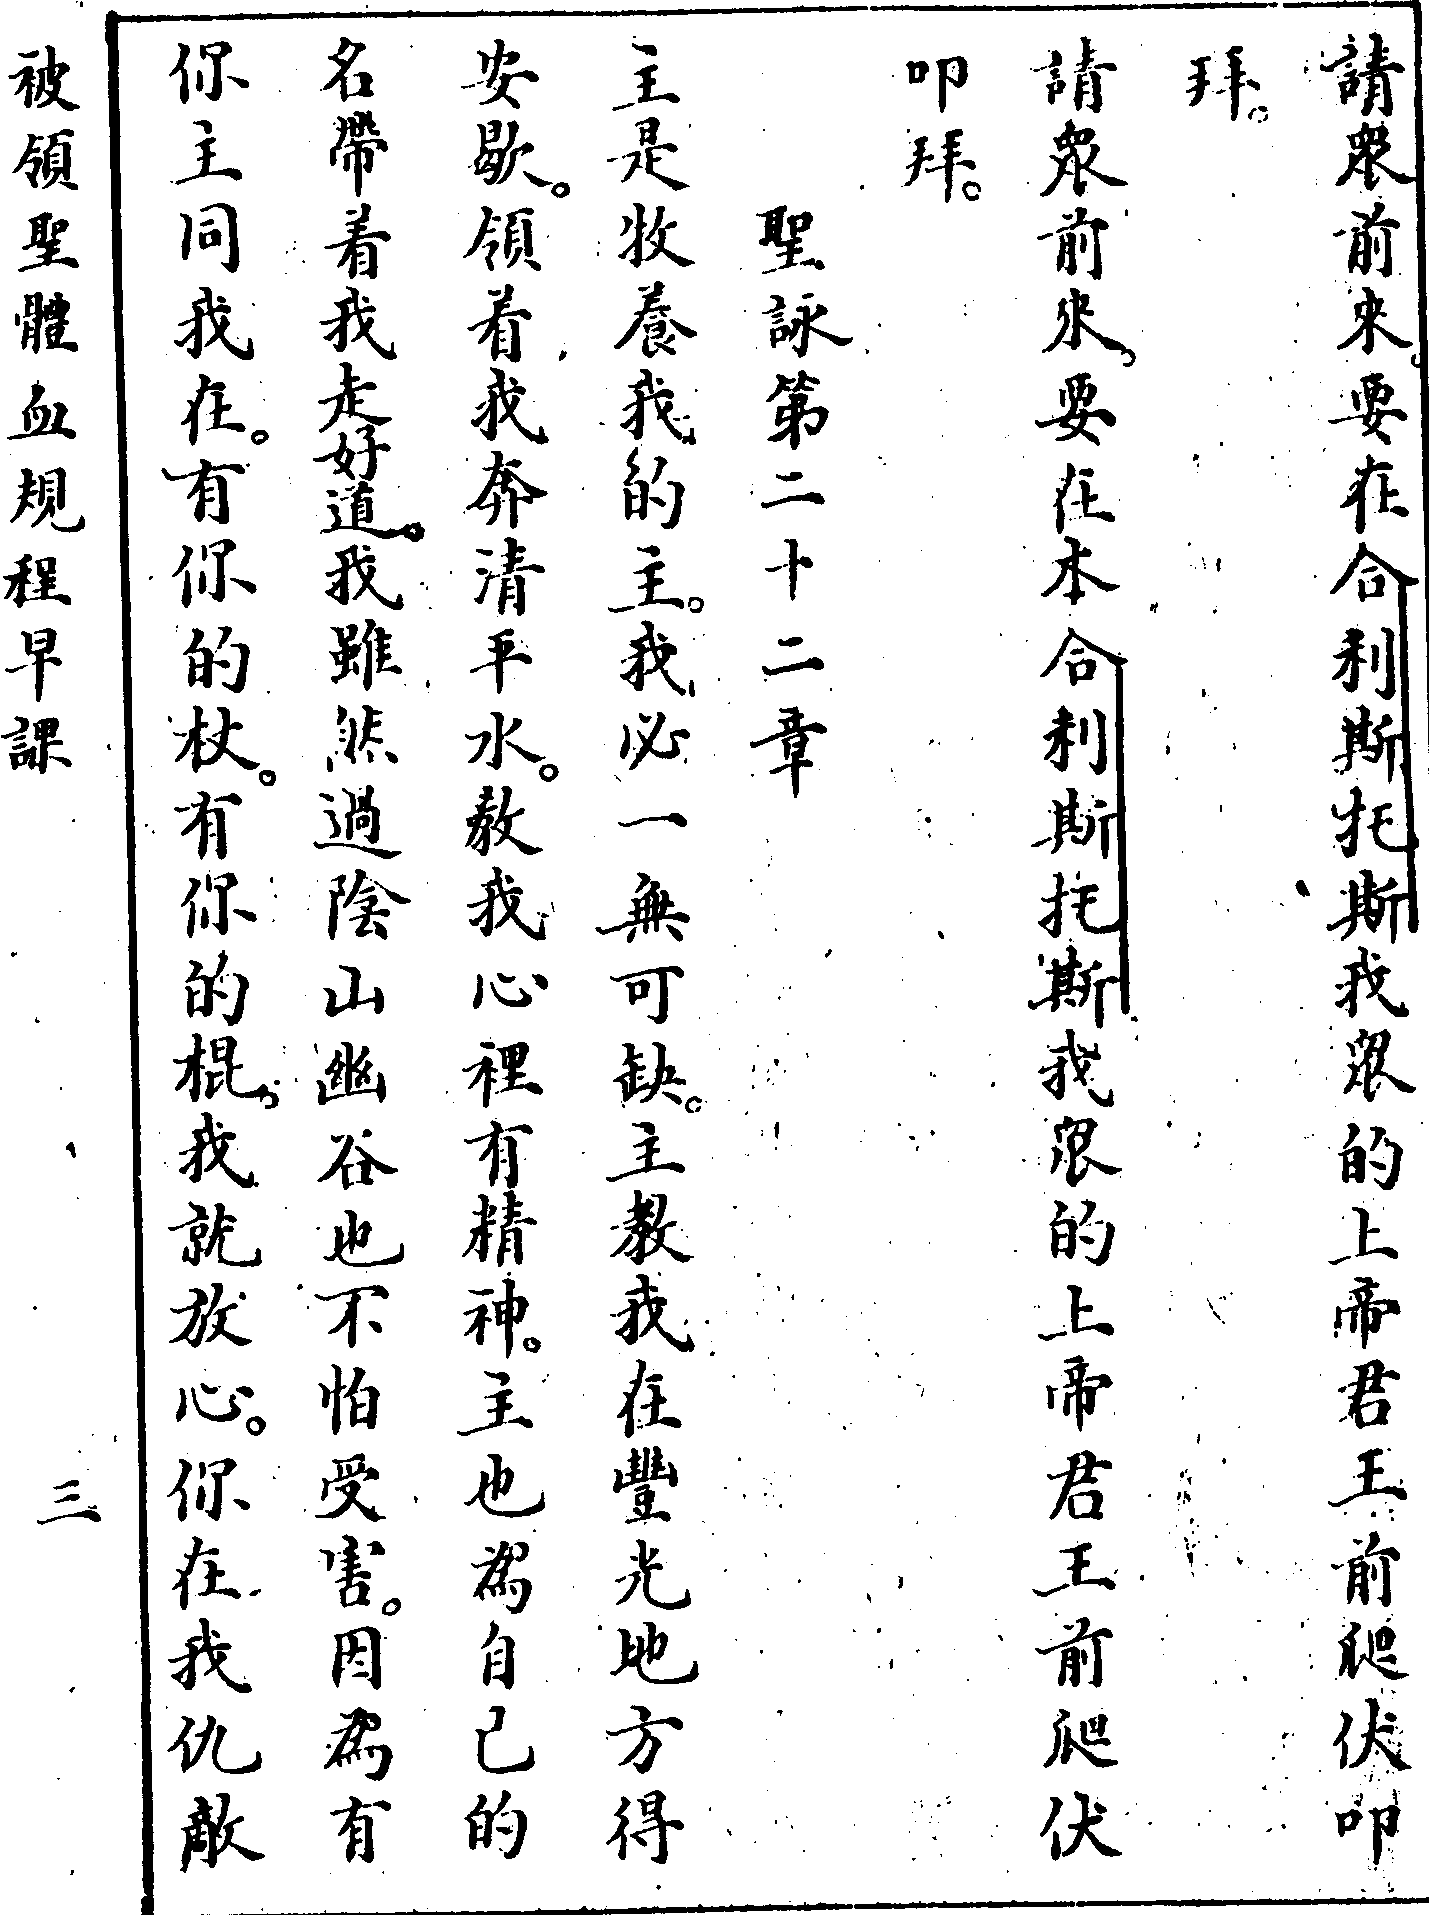 請衆前來。要在合利斯托斯我衆的上帝君王前爬伏叩
拜。
請衆前來。要在本合利斯托斯我衆的上帝君王前爬伏
叩拜。
聖詠第二十二章
主是牧養我的主。我必一無可缺。主教我在豐光地方得
安歇。領着我奔清平水。教我心裡有精神。主也為自己的
名帶着我走好道。我雖然過陰山幽谷也不怕受害。因為有
你主同我在。有你的杖。有你的棍。我就放心。你在我仇敵
被領聖體血規程早課
三